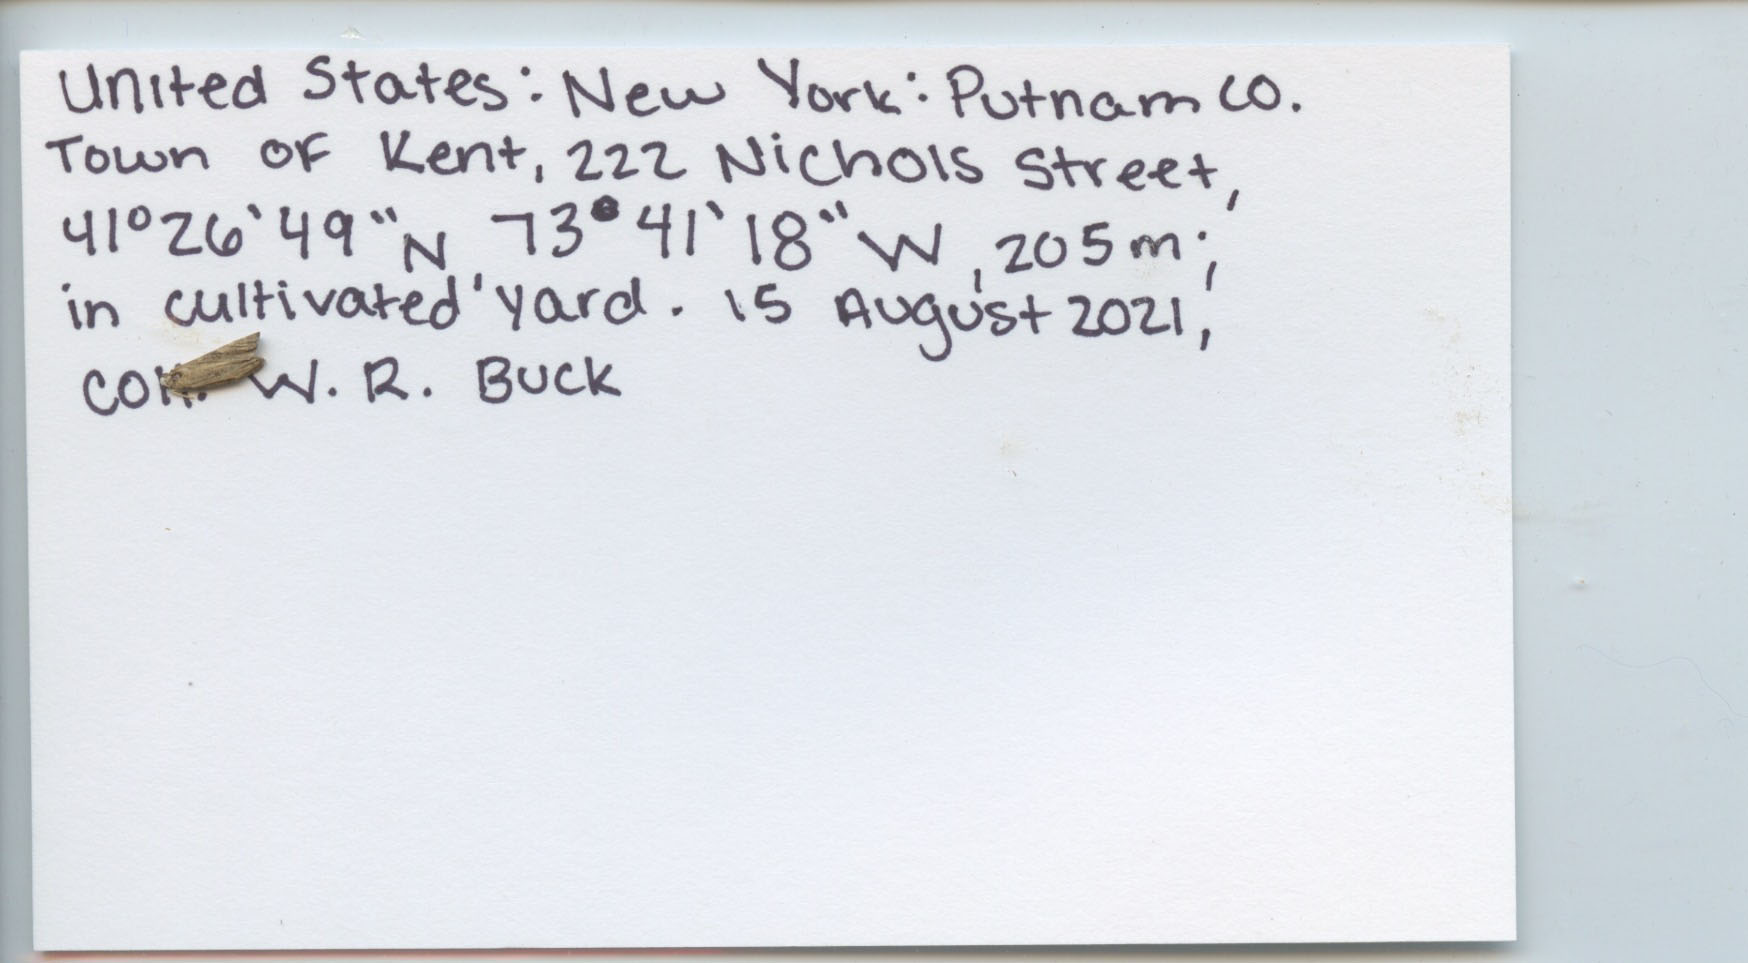 United States: New York: Putnam Co.
Town of Kent, 222 Nichols Street,
41°26'49"N 73°41'18"W, 205m;
in cultivated yard. 15 August 2021,
W. R. Buck